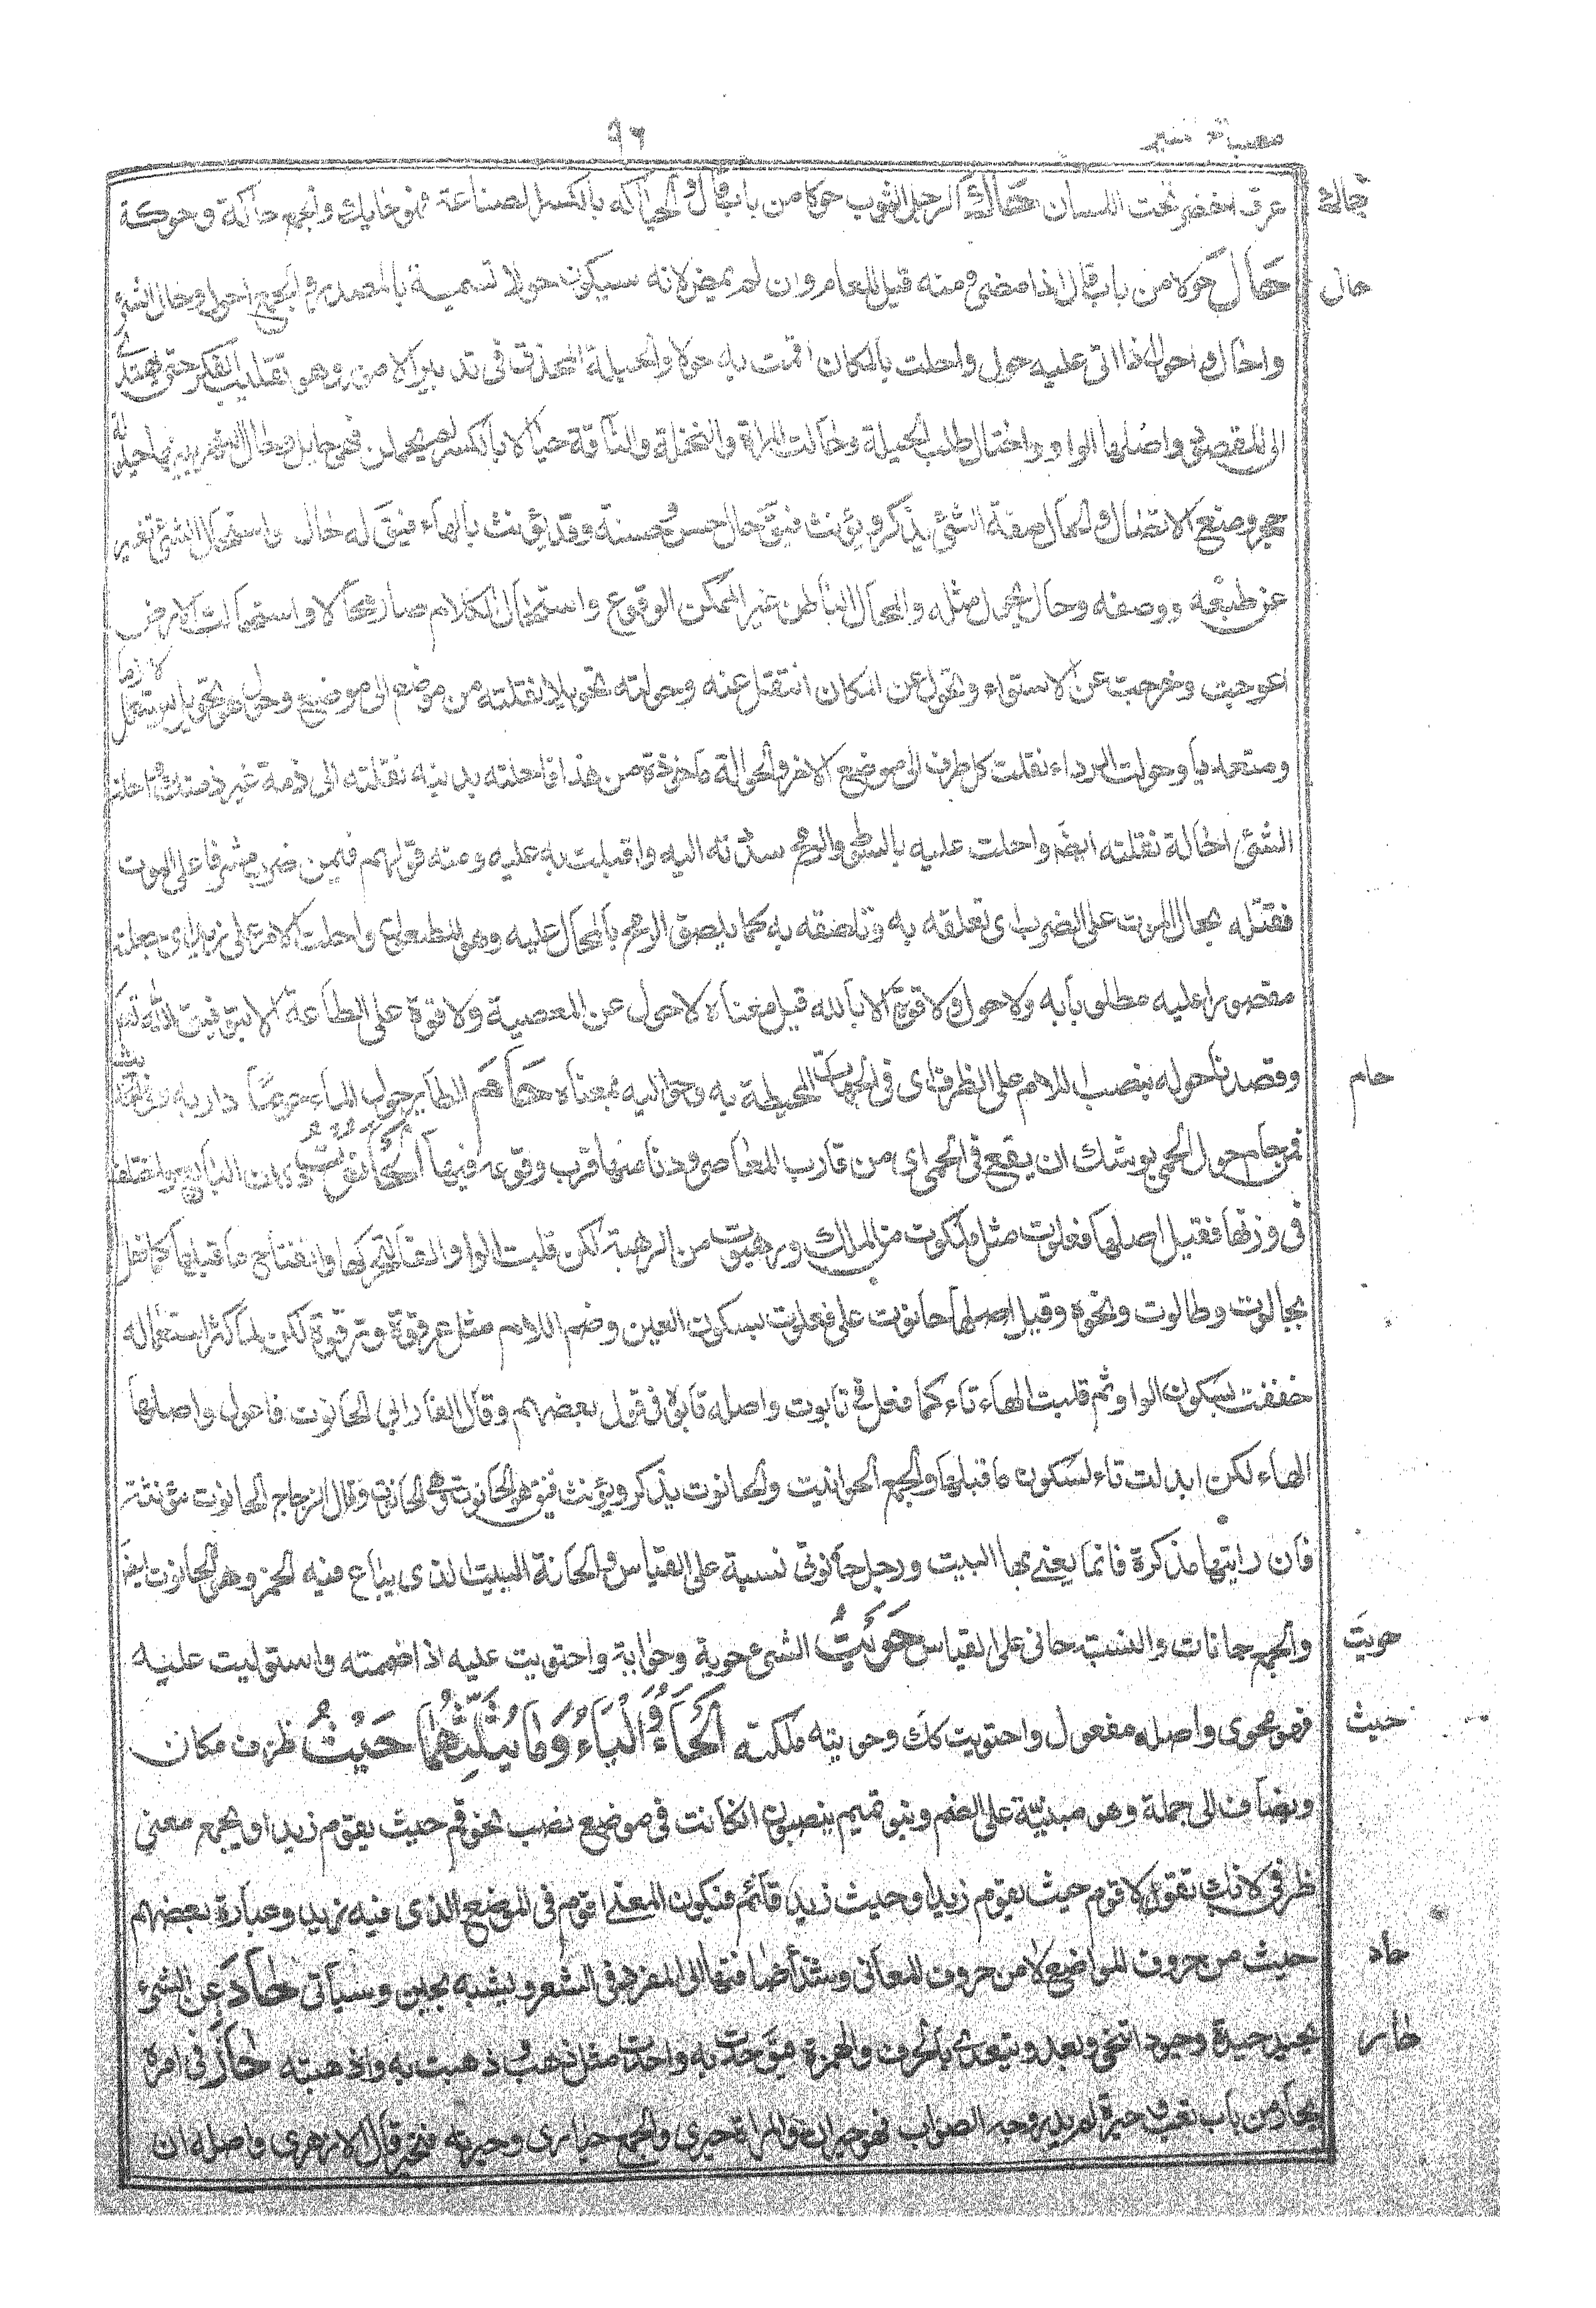 مصباح منير
٩٦
حاك
عرق اخضر تحت اللسان حَاكَ الرجل الثوب حوكا من باب قال والحياكه بالكسر الصناعة فهو حايك والجمع حاكة وحوكة
حال
حَالَ حَولا من باب قال اذا مضى ومنه قيل للعام ولو لم يمض لانه سيكون حولا تسمية بالمصدر والجمع احوال وحال الشئ
واحال واحول اذا اتى عليه حول واحلت بالمكان اقمت به حولا والحيلة الحذق فى تدبير الامور وهو تقليب الفكر حتى يهتدى
الى المقصود واصلها الواو واحتال طلب الحيلة وحالت المراة والنخلة والناقة حيالا بالكسر لم يحمل فهى حايل وحال النهر بيننا حيلولة
حجز ومنع الاتصال والحال صفة الشئ يذكر ويؤنث فيق حال حسن وحسنة وقد يؤنث بالهاء فيق له حالة واستحال الشئ تغير
عن طبعه ووصفه وحال يحول مثله والمحال الباطل غير الممكن الوقوع واستحال الكلام صار محالا واستحالت الارض
اعوجت وخرجت عن الاستواء وتحول عن المكان انتقل عنه وحولته تحويلا نقلته من موضع الى موضع وحول هو تحويلا يستعمل لازما
ومتعديا وحولت الرداء نقلت كل طرف الى موضع الاخر والحوالة ماخوذة من هذا فاحلته بدينه نقلته الى ذمة غير ذمتك واحلت
الشئ احالة نقلته ايضم واحلت عليه بالسوط والرمح سددته اليه واقبلت به عليه ومنه قولهم فيمن ضرب مشرفا على الموت
فقتله يحال الموت على الضرب اى تعلقه به وتلصقه به كما يلصق الرمح بالمحال عليه وهو المطعون واحلت الامر على زيد اى جعلته
مقصورا عليه مطلوبا به ولا حول ولا قوة الا بالله قيل معناه لا حول عن المعصية ولا قوة على الطاعة الا بتوفيق الله تعم
حام
وقعدنا حوله بنصب اللام على الظرف اى فى الجهات المحيطة به وحواليه بمعناه حَامَ الطاير حول الماء حومًا دار به وفى الحديث
فمن حام حول الحمى يوشك ان يقع فى الحمى اى من قارب المعاصى ودنا منها قرب وقوعه فيها الحَانُوتُ دكان البايع واختلف
فى وزنها فقيل اصلها فعلوت مثل ملكوت من الملك ورهبوت من الرهبة لكن قلبت الواو الفا لتحركها وانفتاح ما قبلها كما فعل
بجالوت وطالوت ونحوه وقيل اصلها حانوت على فعلوت بسكون العين وضم اللام مثل عرقوة وترقوة لكن لما كثر استعماله
خففت بسكون الواو ثم قلبت الهاء تاء كما فعل فى تابوت واصله تابوه فى قول بعضهم وقال الفارابي الحانوت فاعول واصلها
الهاء لكن ابدلت تاء لسكون ما قبلها والجمع الحوانيت والحانوت يذكر ويؤنث فيق هو الحانوت وهى الحانوت وقال الزجاج الحانوت مؤنثة
فان رايتها مذكرة فانما يعنى بها البيت ورجل حانوتى نسبة على القياس والحانة البيت الذى يباع فيه الخمر وهو الحانوت ايضم
حويت
والجمع حانات والنسبة حانى على القياس حَوَيْتُ الشئ حوية وحواية واحتويت عليه اذا ضممته واستوليت عليه
حيث
فهو محوى واصله مفعول واحتويت كك وحويته ملكته الحَاءُ وَالْيَاءُ وَمَا يُثَلِّثُهُمَا حَيْثُ ظرف مكان
ويضاف الى جملة وهو مبنيّة على الضم وبنو تميم ينصبون اذا كانت فى موضع نصب نحو قم حيث يقوم زيد او يجمع معنى
ظرفى لانك تقول اقوم حيث يقوم زيد وحيث زيد قائم فيكون المعنى اقوم فى الموضع الذى فيه زيد وعبارة بعضهم
حاد
حيث من حروف المواضع لا من حروف المعانى وشذ اضافتها الى المفرد فى الشعر ويشبه بحين وسيأتى حَادَ عن الشئ
حار
يحيد حيدة وحيودا تنحى وبعد ويتعدى بالحرف والهمزة فيق حدت به واحدته مثل ذهب وذهبت به واذهبته حَارَ فى امره
يحار من باب تعب حيرة لم يدر وجه الصواب فهو حيران والمراة حيرى والجمع حيارى وحيرته فتحير قال الازهرى واصله ان